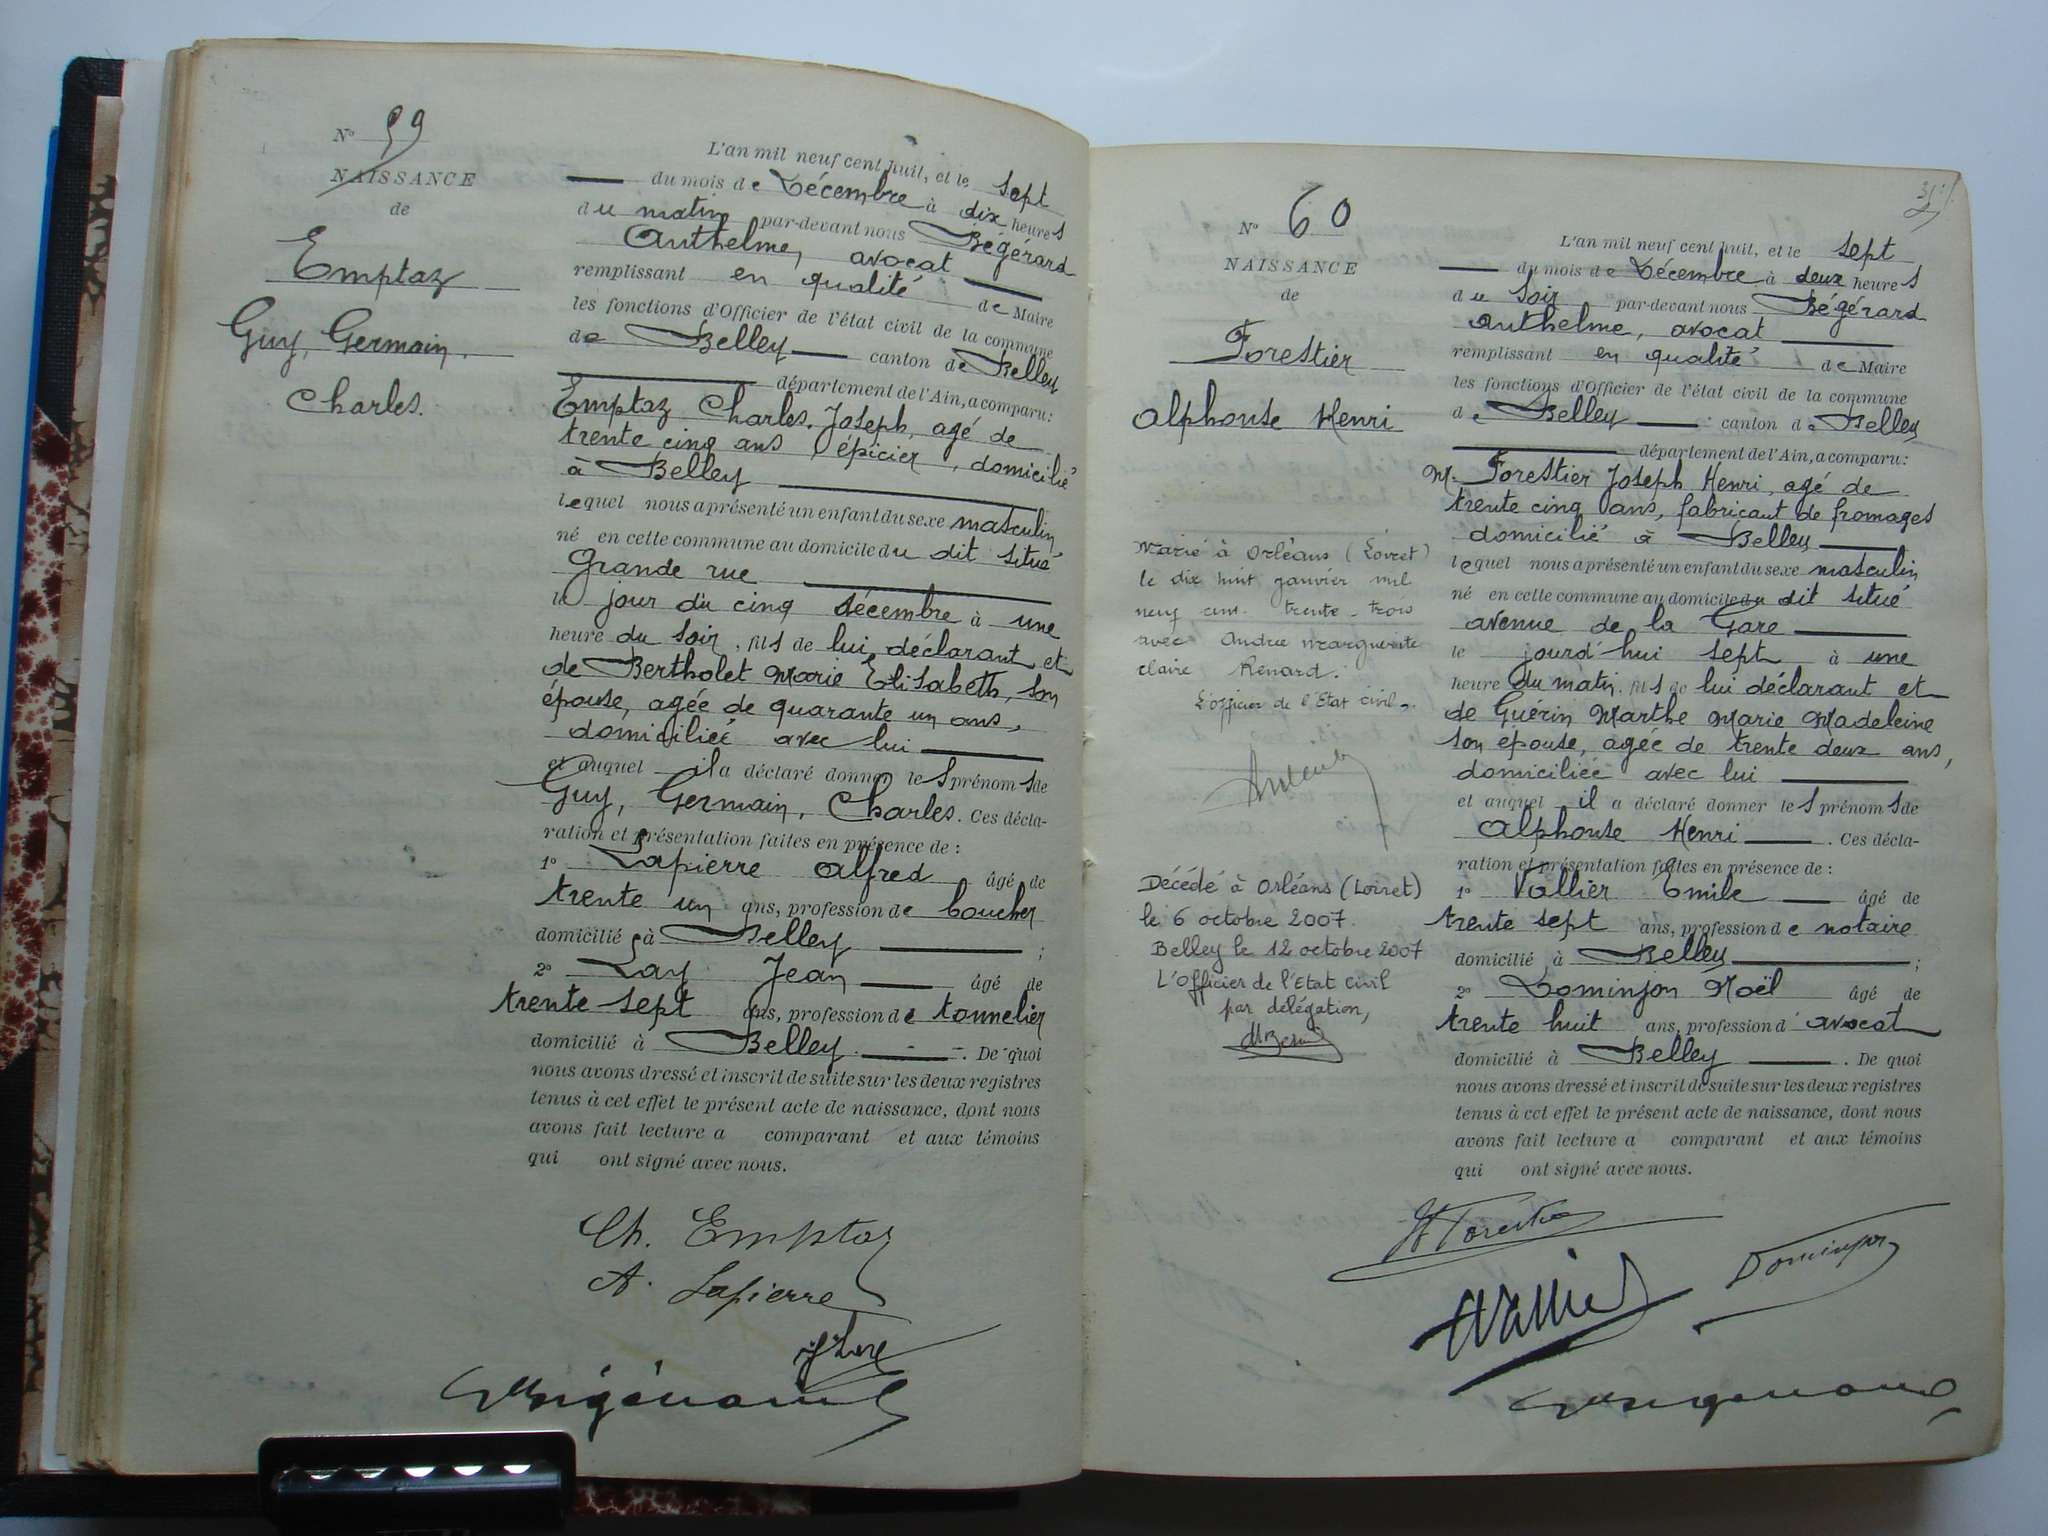 N° 59
NAISSANCE
de
Emptaz
Guy, Germain,
Charles.
L'an mil neuf cent huit, et le sept
du mois de Décembre à dix heures
du matin par-devant nous Bégérard
Anthelme, avocat
remplissant en qualité de Maire
les fonctions d'Officier de l'état civil de la commune
de Belley canton de Belley
département de l'Ain, a comparu:
Emptaz Charles, Joseph, agé de
trente cinq ans épicier, domicilié
à Belley
lequel nous a présenté un enfant du sexe masculin
né en cette commune au domicile du dit situé
Grande rue
le jour du cinq décembre à une
heure du soir, fils de lui déclarant et
de Bertholet Marie Elisabeth, son
épouse, agée de quarante un ans,
domiciliée avec lui
et auquel il a déclaré donner les prénoms de
Guy, Germain, Charles. Ces décla-
ration et présentation faites en présence de :
1° Lapierre Alfred âgé de
trente un ans, profession de boucher
domicilié à Belley ;
2° Lay Jean âgé de
trente sept ans, profession de tonnelier
domicilié à Belley. De quoi
nous avons dressé et inscrit de suite sur les deux registres
tenus à cet effet le présent acte de naissance, dont nous
avons fait lecture a comparant et aux témoins
qui ont signé avec nous.
Ch. Emptaz
A. Lapierre
N° 60
NAISSANCE
de
Forestier
Alphonse Henri
Marié à Orléans (Loiret)
le dix huit janvier mil
neuf cent trente-trois
avec Andrée Marguerite
Claire Renard.
L'officier de l'Etat civil.
Décédé à Orléans (Loiret)
le 6 octobre 2007.
Belley le 12 octobre 2007
L'Officier de l'Etat Civil
par délégation,
L'an mil neuf cent huit, et le sept
du mois de Décembre à deux heures
du soir par-devant nous Bégérard
Anthelme, avocat
remplissant en qualité de Maire
les fonctions d'Officier de l'état civil de la commune
de Belley canton de Belley
département de l'Ain, a comparu:
M. Forestier Joseph Henri, agé de
trente cinq ans, fabricant de fromages
domicilié à Belley
lequel nous a présenté un enfant du sexe masculin
né en cette commune au domicile du dit situé
avenue de la Gare
le jourd'hui sept à une
heure du matin, fils de lui déclarant et
de Guérin Marthe Marie Madeleine
son épouse, agée de trente deux ans,
domiciliée avec lui
et auquel il a déclaré donner les prénoms de
Alphonse Henri. Ces décla-
ration et présentation faites en présence de :
1° Vallier Emile âgé de
trente sept ans, profession de notaire
domicilié à Belley ;
2° Dominjon Noël âgé de
trente huit ans, profession d'avocat
domicilié à Belley. De quoi
nous avons dressé et inscrit de suite sur les deux registres
tenus à cet effet le présent acte de naissance, dont nous
avons fait lecture a comparant et aux témoins
qui ont signé avec nous.
H Forestier
Dominjon
EVallier